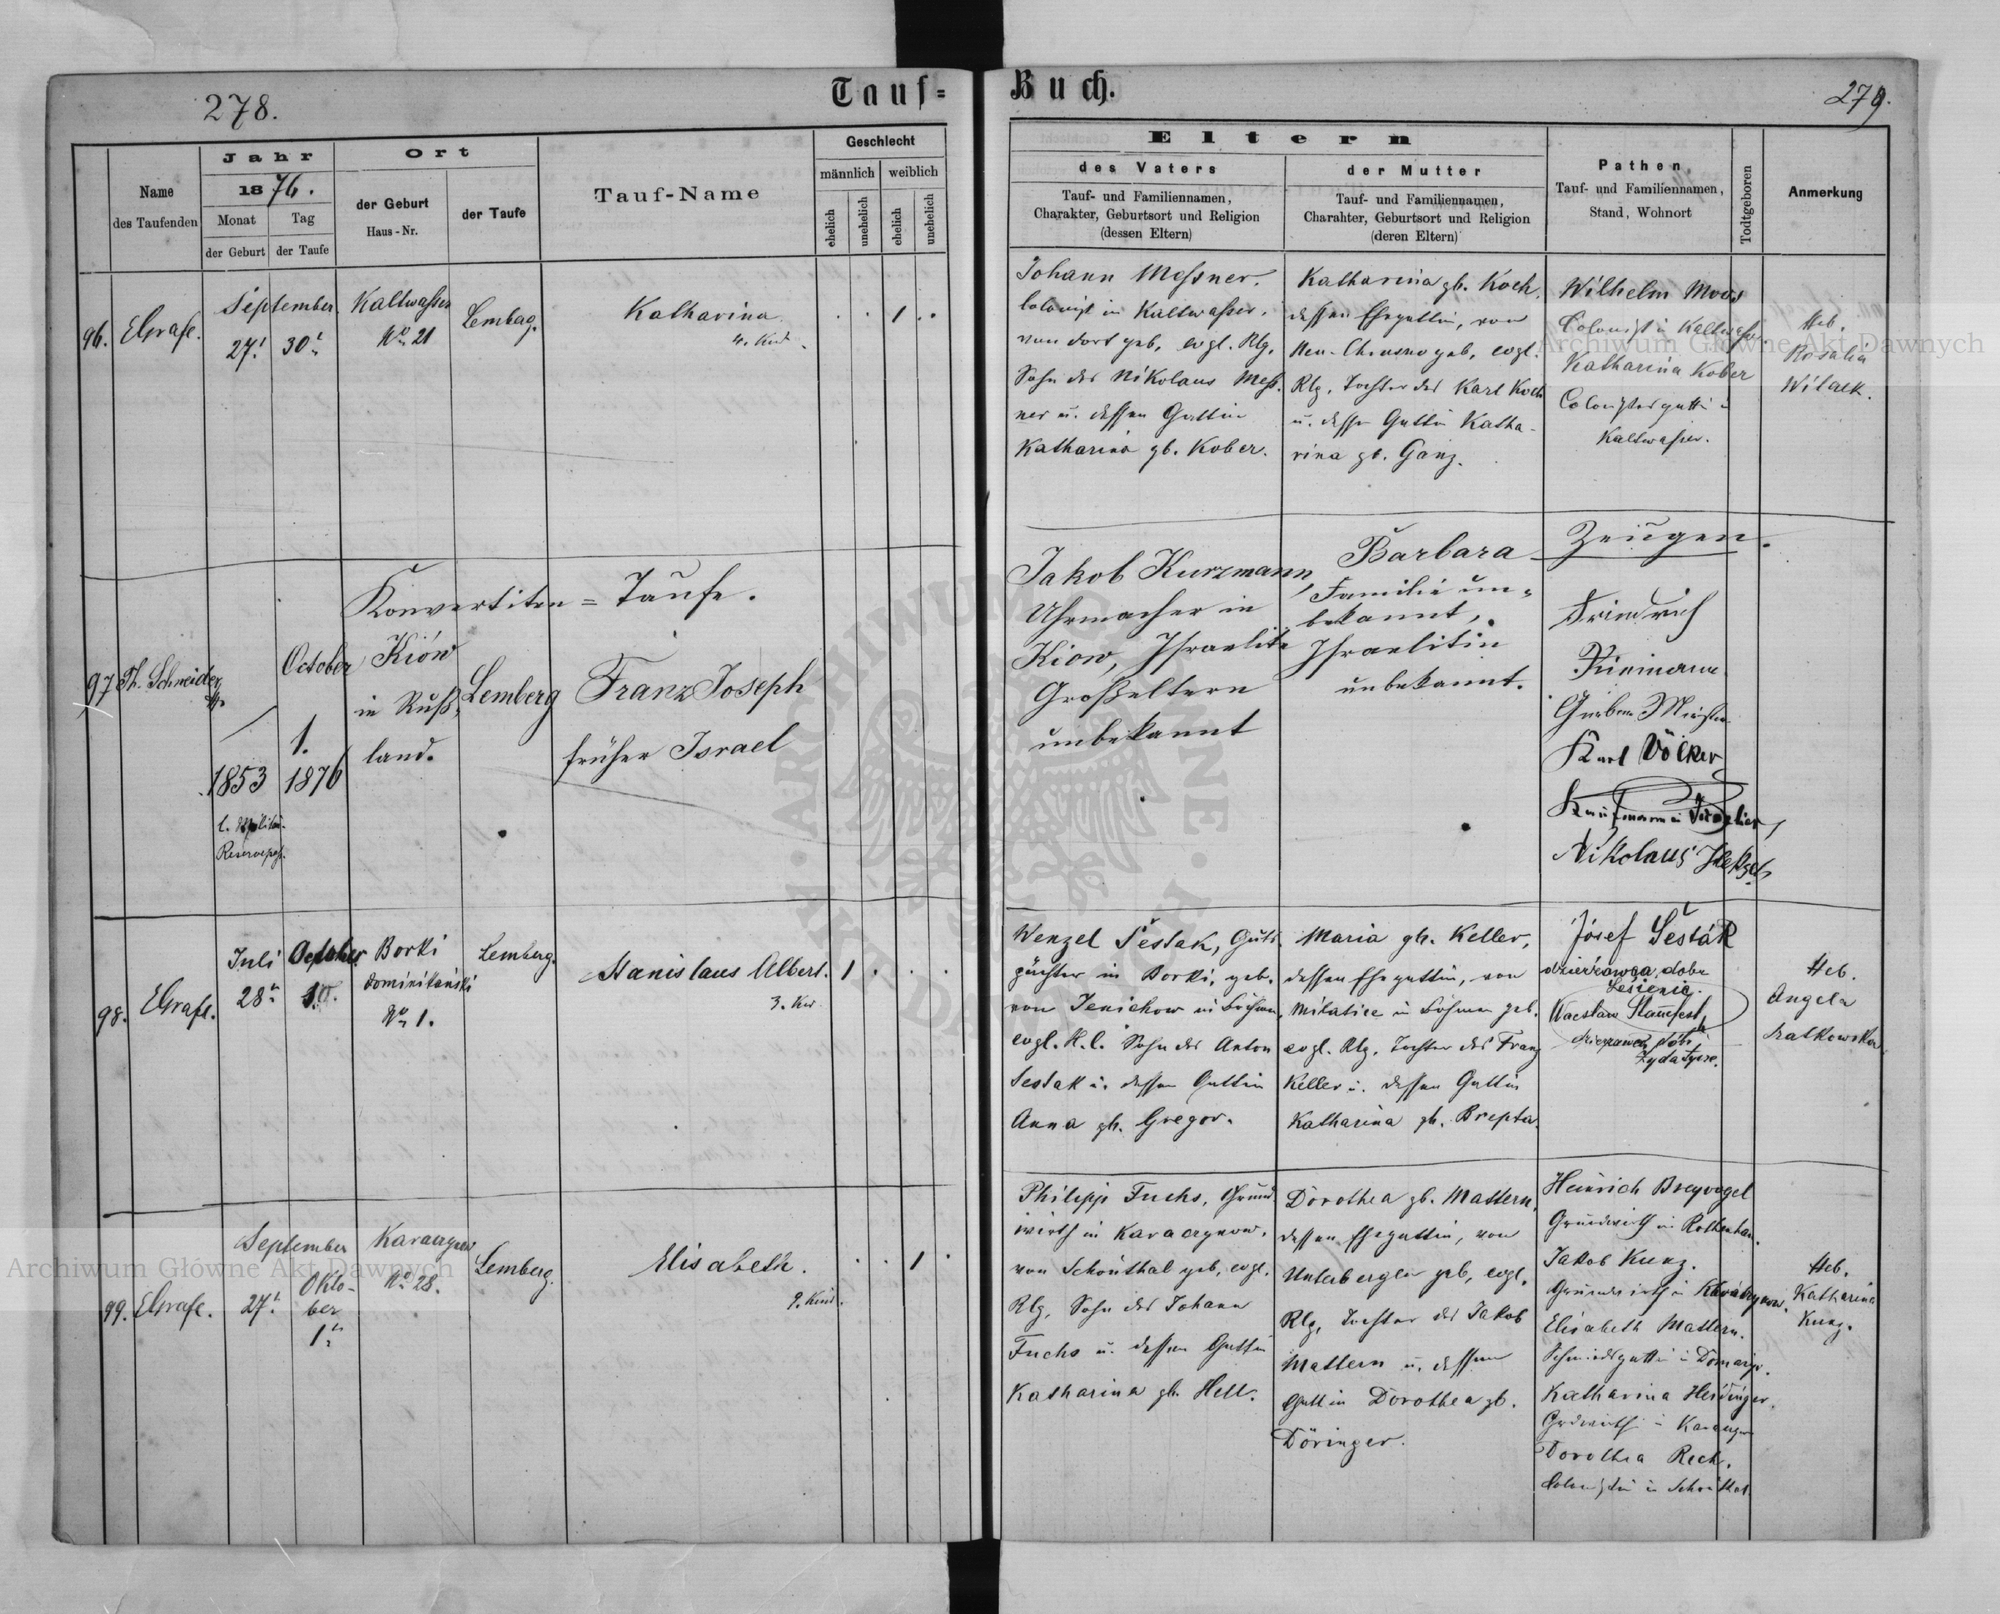 278.
Tauf=
Name
des Taufenden
Jahr
1876.
Monat
Tag
der Geburt
der Taufe
Ort
der Geburt
Haus-Nr.
der Taufe
Tauf-Name
Geschlecht
männlich
weiblich
ehelich
unehelich
ehelich
unehelich
96.
EGrafe.
September
27t
30t
Kaltwasser
No 21
Lemberg.
Katharina
4. Kind.
1
Konvertiten = Taufe.
97
Th. Schneider
1853
October
1.
1876
Kiów
in Ruß=
land.
Lemberg
Franz Joseph
früher Israel
98.
EGrafe.
Juli
28t
October
Borki
dominikański
No 1.
Lemberg.
Stanislaus Albert.
1
99.
EGrafe.
September
27t
Okto-
ber
1t
No 28.
Lemberg.
Elisabeth.
9. Kind.
1
Buch.
279.
Eltern
des Vaters
Tauf- und Familiennamen,
Charakter, Geburtsort und Religion
(dessen Eltern)
der Mutter
Tauf- und Familiennamen,
Charahter, Geburtsort und Religion
(deren Eltern)
Pathen,
Tauf- und Familiennamen,
Stand, Wohnort
Todtgeboren
Anmerkung
Johann Messner.
Colonist in Kaltwasser,
von dort geb, evgl. Rlg,
Sohn des Nikolaus Mess-
ner u. dessen Gattin
Katharina gb. Kober.
Katharina gb. Koch.
dessen Ehegattin, von
Neu-Chrusno geb, evgl.
Rlg, Tochter des Karl Koch
u. dessen Gattin Katha-
rina gb. Ganz.
Wilhelm Moos
Colonist in Kaltwasser.
Katharina Kober
Colonistengattin in
Kaltwasser.
Heb.
Rosalia
Witaek.
Jakob Kurzmann,
Uhrmacher in
Kiow, Israelite
Großeltern
unbekannt
Barbara
Familie un=
bekannt,
Israelitin
unbekannt.
Zeugen.
Friedrich
Karl Völker
Nikolaus
Wenzel Šestak, Guts-
pächter in Borki, geb.
von Jenickow in Böhmen,
evgl. H.C. Sohn des Anton
Sestak u. dessen Gattin
Anna gb. Gregor.
Maria gb. Keller,
dessen Ehegattin, von
Milasice in Böhmen geb.
evgl. Rlg, Tochter des Franz
Keller u. dessen Gattin
Katharina gb. Brepta.
Józef Šesták
dzierżawca dóbr
Wacsław Stamfest
Heb.
Angela
Philipp Fuchs, Grund-
wirth in Karaczynow.
von Schönthal geb, evgl.
Rlg, Sohn des Johann
Fuchs u. dessen Gattin
Katharina gb. Hell.
Dorothea gb. Mattern,
dessen Ehegattin, von
Unterbergen geb, evgl.
Rlg, Tochter des Jakob
Mattern u. dessen
Gattin Dorothea gb.
Döringer.
Heinrich Breyvogel
Grundwirth in Rottenhan.
Jakob Kunz.
Grundwirth in Karaczynow.
Elisabeth Mattern.
Schmiedsgattin in
Katharina Heidinger.
Dorothea Rech.
Colonistin in Schönthal
Heb.
Katharina
Kunz.
Archiwum Główne Akt Dawnych
Archiwum Główne Akt Dawnych